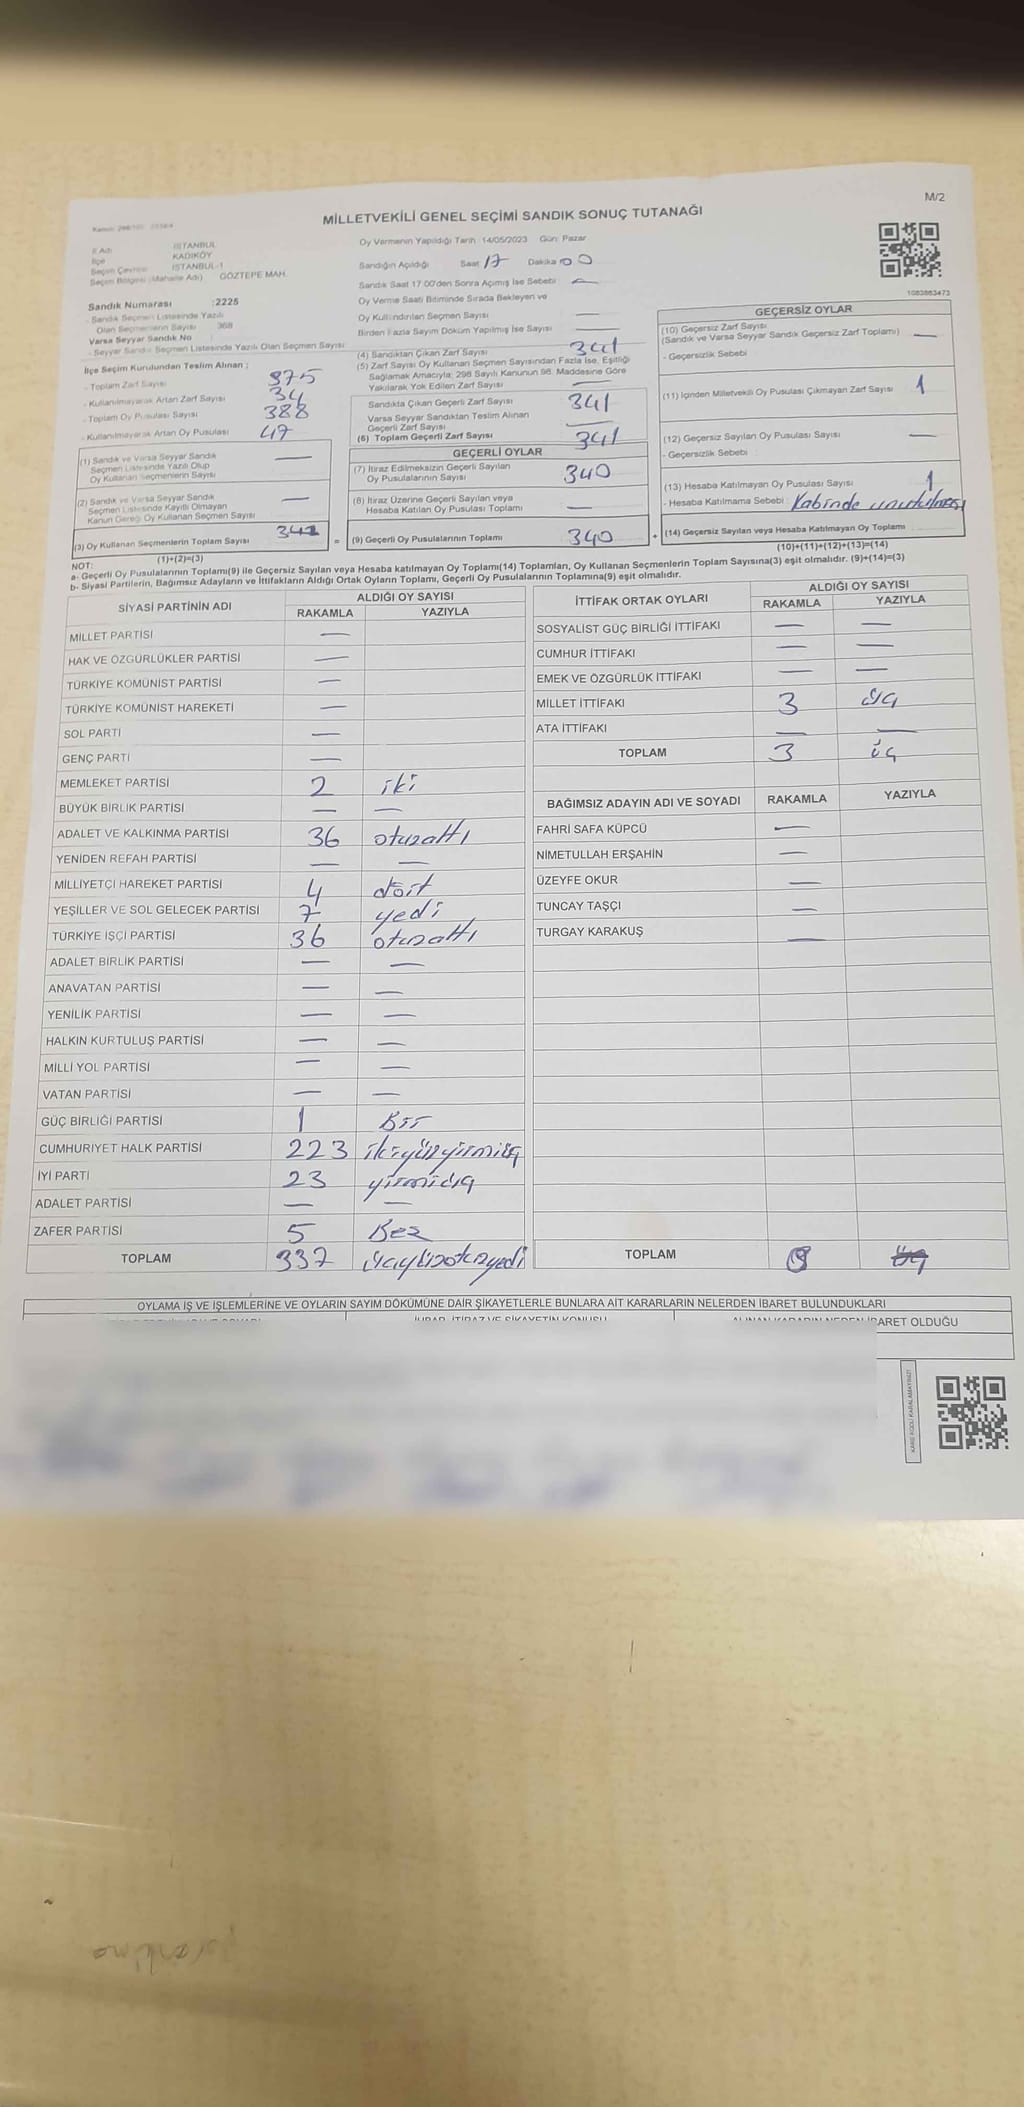 M/2
MİLLETVEKİLİ GENEL SEÇİMİ SANDIK SONUÇ TUTANAĞI
İl Adı İSTANBUL
İlçe KADIKÖY
Seçim Çevresi İSTANBUL-1
Seçim Bölgesi (Mahalle Adı) GÖZTEPE MAH.
Sandık Numarası :2225
- Sandık Seçmen Listesinde Yazılı
Olan Seçmenlerin Sayısı 368
Varsa Seyyar Sandık No
- Seyyar Sandık Seçmen Listesinde Yazılı Olan Seçmen Sayısı
İlçe Seçim Kurulundan Teslim Alınan ;
- Toplam Zarf Sayısı 375
- Kullanılmayarak Artan Zarf Sayısı 34
- Toplam Oy Pusulası Sayısı 388
- Kullanılmayarak Artan Oy Pusulası 47
(1) Sandık ve Varsa Seyyar Sandık
Seçmen Listesinde Yazılı Olup
Oy Kullanan Seçmenlerin Sayısı —
(2) Sandık ve Varsa Seyyar Sandık
Seçmen Listesinde Kayıtlı Olmayan
Kanun Gereği Oy Kullanan Seçmen Sayısı —
(3) Oy Kullanan Seçmenlerin Toplam Sayısı 341 =
(1)+(2)=(3)
Oy Vermenin Yapıldığı Tarih : 14/05/2023 Gün: Pazar
Sandığın Açıldığı Saat 17 Dakika 00
Sandık Saat 17.00'den Sonra Açılmış İse Sebebi —
Oy Verme Saati Bitiminde Sırada Bekleyen ve
Oy Kullandırılan Seçmen Sayısı —
Birden Fazla Sayım Döküm Yapılmış İse Sayısı —
(4) Sandıktan Çıkan Zarf Sayısı 341
(5) Zarf Sayısı Oy Kullanan Seçmen Sayısından Fazla İse, Eşitliği
Sağlamak Amacıyla; 298 Sayılı Kanunun 98. Maddesine Göre
Yakılarak Yok Edilen Zarf Sayısı —
Sandıkta Çıkan Geçerli Zarf Sayısı 341
Varsa Seyyar Sandıktan Teslim Alınan
Geçerli Zarf Sayısı —
(6) Toplam Geçerli Zarf Sayısı 341
GEÇERLİ OYLAR
(7) İtiraz Edilmeksizin Geçerli Sayılan
Oy Pusulalarının Sayısı 340
(8) İtiraz Üzerine Geçerli Sayılan veya
Hesaba Katılan Oy Pusulası Toplamı —
(9) Geçerli Oy Pusulalarının Toplamı 340 +
1083863473
GEÇERSİZ OYLAR
(10) Geçersiz Zarf Sayısı
(Sandık ve Varsa Seyyar Sandık Geçersiz Zarf Toplamı) —
- Geçersizlik Sebebi
(11) İçinden Milletvekili Oy Pusulası Çıkmayan Zarf Sayısı 1
(12) Geçersiz Sayılan Oy Pusulası Sayısı —
- Geçersizlik Sebebi
(13) Hesaba Katılmayan Oy Pusulası Sayısı 1
- Hesaba Katılmama Sebebi : Kabinde unutulması
(14) Geçersiz Sayılan veya Hesaba Katılmayan Oy Toplamı
(10)+(11)+(12)+(13)=(14)
NOT:
a- Geçerli Oy Pusulalarının Toplamı(9) ile Geçersiz Sayılan veya Hesaba katılmayan Oy Toplamı(14) Toplamları, Oy Kullanan Seçmenlerin Toplam Sayısına(3) eşit olmalıdır. (9)+(14)=(3)
b- Siyasi Partilerin, Bağımsız Adayların ve İttifakların Aldığı Ortak Oyların Toplamı, Geçerli Oy Pusulalarının Toplamına(9) eşit olmalıdır.
SİYASİ PARTİNİN ADI ALDIĞI OY SAYISI
RAKAMLA YAZIYLA
MİLLET PARTİSİ —
HAK VE ÖZGÜRLÜKLER PARTİSİ —
TÜRKİYE KOMÜNİST PARTİSİ —
TÜRKİYE KOMÜNİST HAREKETİ —
SOL PARTİ —
GENÇ PARTİ —
MEMLEKET PARTİSİ 2 iki
BÜYÜK BİRLİK PARTİSİ — —
ADALET VE KALKINMA PARTİSİ 36 otuzaltı
YENİDEN REFAH PARTİSİ — —
MİLLİYETÇİ HAREKET PARTİSİ 4 dört
YEŞİLLER VE SOL GELECEK PARTİSİ 7 yedi
TÜRKİYE İŞÇİ PARTİSİ 36 otuzaltı
ADALET BİRLİK PARTİSİ — —
ANAVATAN PARTİSİ — —
YENİLİK PARTİSİ — —
HALKIN KURTULUŞ PARTİSİ — —
MİLLİ YOL PARTİSİ — —
VATAN PARTİSİ — —
GÜÇ BİRLİĞİ PARTİSİ 1 Bir
CUMHURİYET HALK PARTİSİ 223 ikiyüzyirmiüç
İYİ PARTİ 23 yirmiüç
ADALET PARTİSİ — —
ZAFER PARTİSİ 5 Beş
TOPLAM 337 üçyüzotuzyedi
İTTİFAK ORTAK OYLARI ALDIĞI OY SAYISI
RAKAMLA YAZIYLA
SOSYALİST GÜÇ BİRLİĞİ İTTİFAKI — —
CUMHUR İTTİFAKI — —
EMEK VE ÖZGÜRLÜK İTTİFAKI — —
MİLLET İTTİFAKI 3 üç
ATA İTTİFAKI — —
TOPLAM 3 üç
BAĞIMSIZ ADAYIN ADI VE SOYADI RAKAMLA YAZIYLA
FAHRİ SAFA KÜPCÜ —
NİMETULLAH ERŞAHİN —
ÜZEYFE OKUR —
TUNCAY TAŞÇI —
TURGAY KARAKUŞ —
TOPLAM
OYLAMA İŞ VE İŞLEMLERİNE VE OYLARIN SAYIM DÖKÜMÜNE DAİR ŞİKAYETLERLE BUNLARA AİT KARARLARIN NELERDEN İBARET BULUNDUKLARI
OLDUĞU